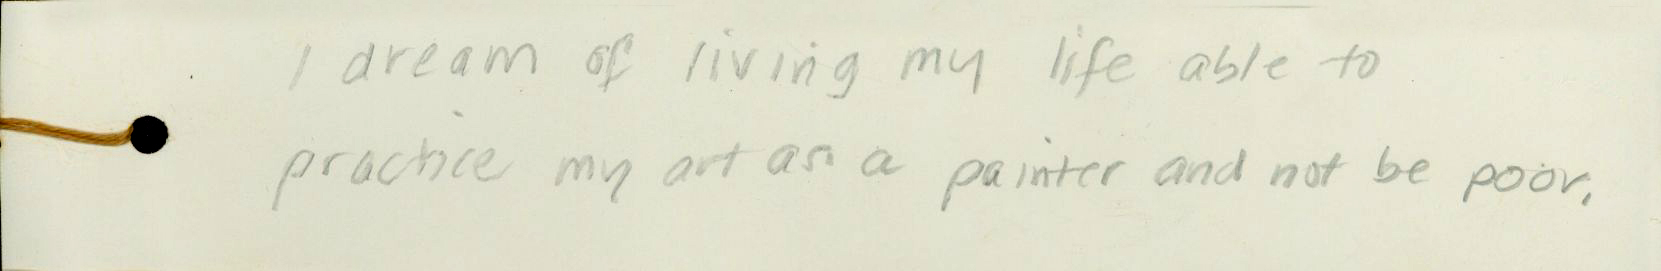 I dream of living my life able to
practice my art as a painter and not be poor.